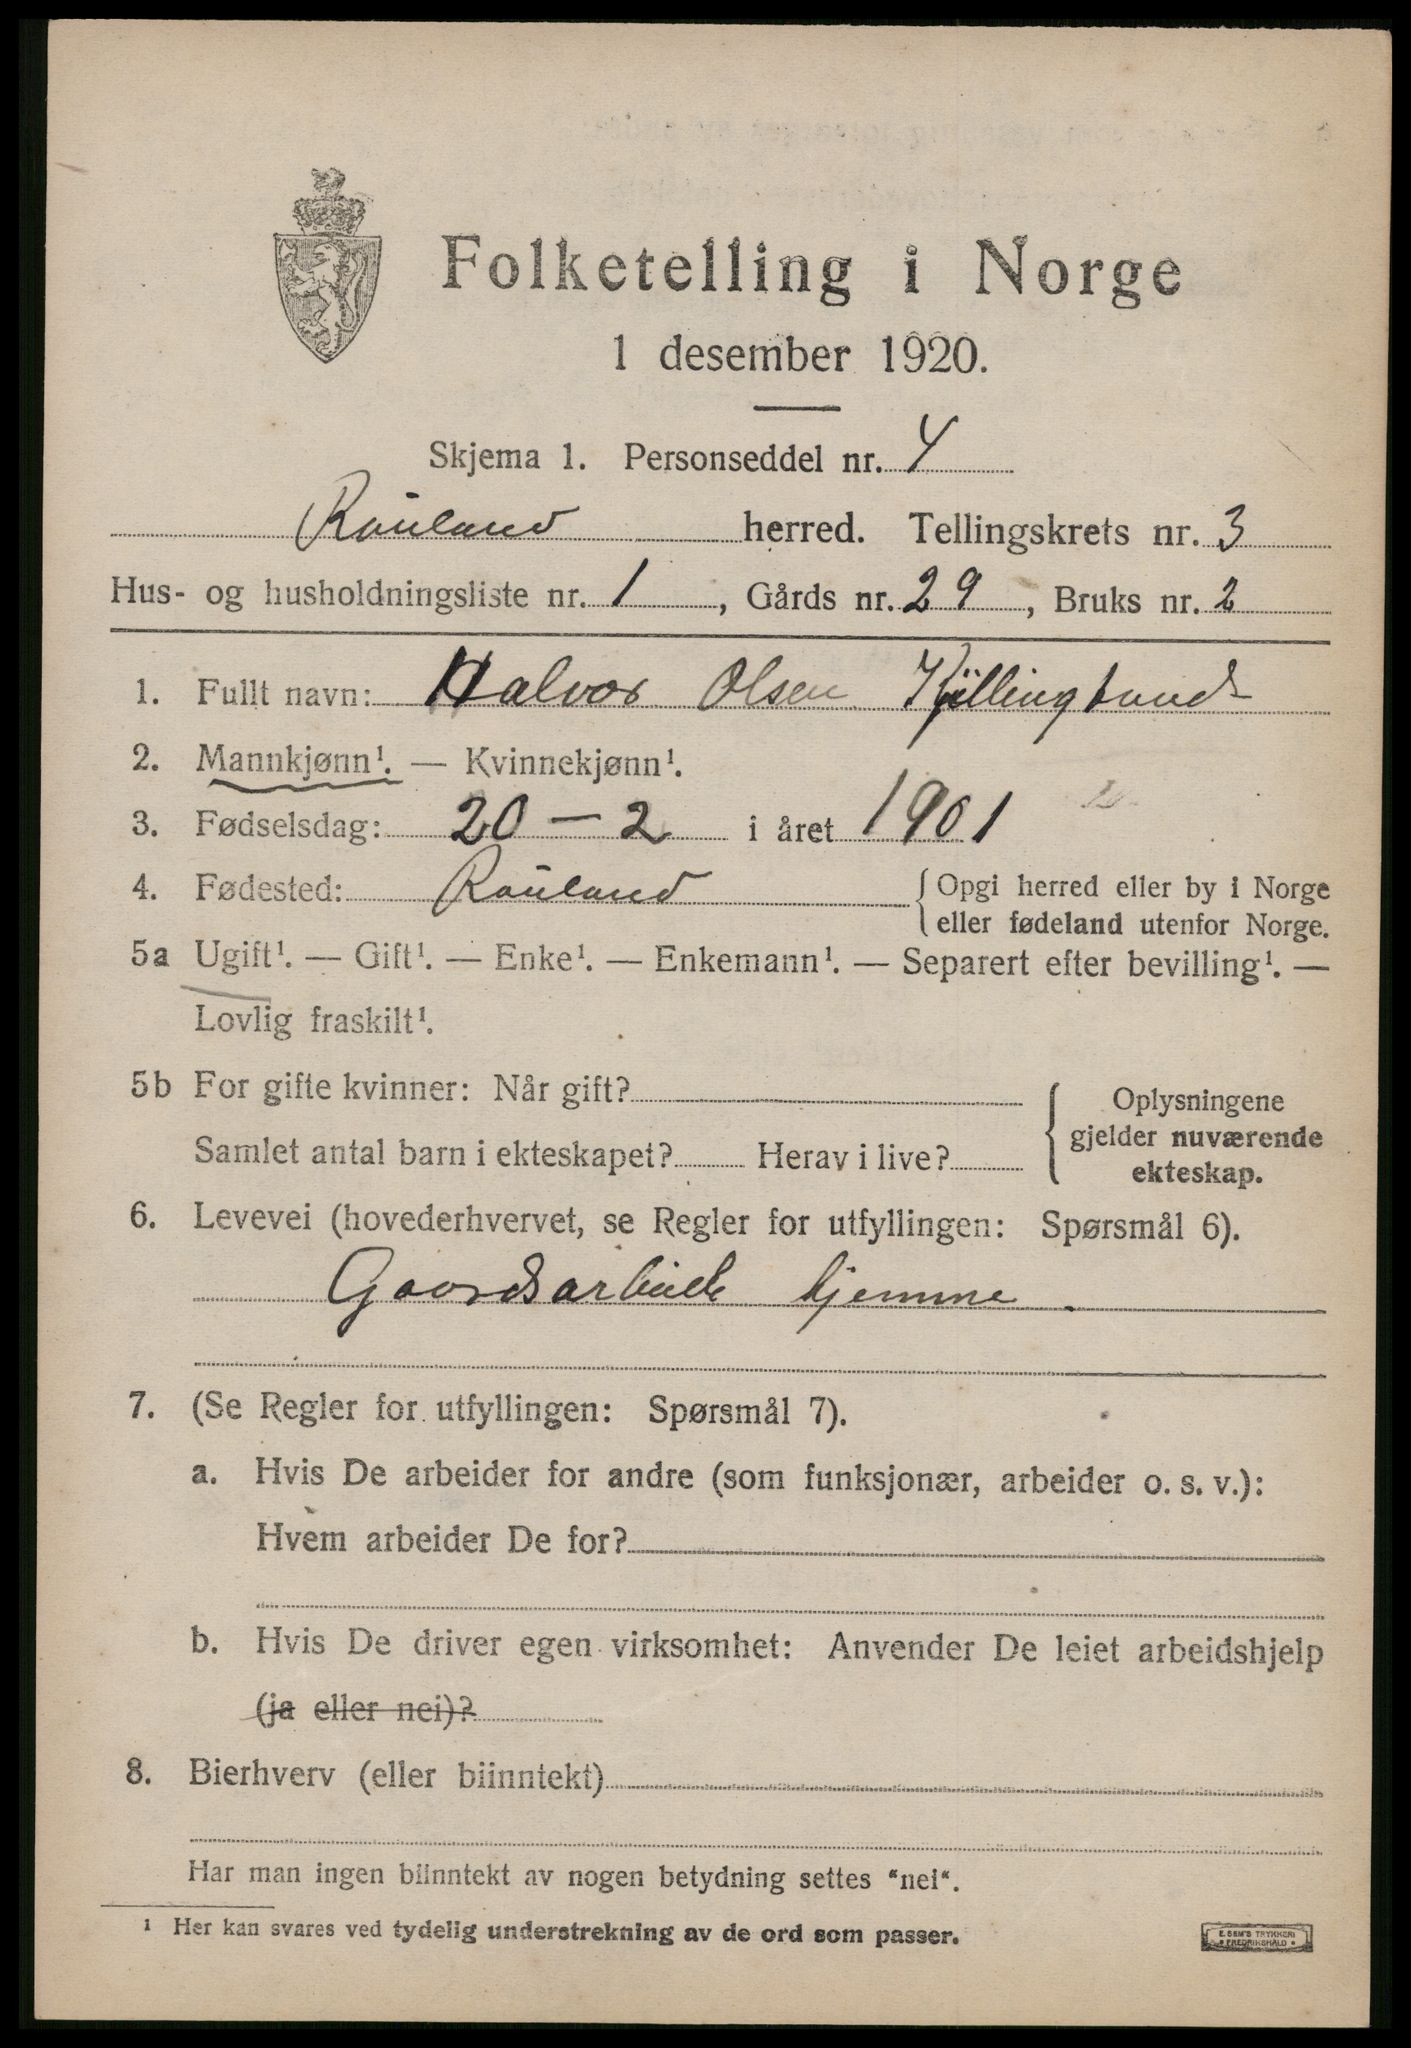 Folketelling i Norge
1 desember 1920.
Skjema 1. Personseddel nr. 4
Rauland herred. Tellingskrets nr. 3
Hus- og husholdningsliste nr. 1, Gårds nr. 29, Bruks nr. 2
1. Fullt navn: Halvor Olsen
2. Mannkjønn¹. — Kvinnekjønn¹.
3. Fødselsdag: 20 – 2 i året 1901
4. Fødested: Rauland
{Opgi herred eller by i Norge
eller fødeland utenfor Norge.
5a Ugift¹. — Gift¹. — Enke¹. — Enkemann¹. — Separert efter bevilling¹. —
Lovlig fraskilt¹.
5b For gifte kvinner: Når gift?
Samlet antal barn i ekteskapet? Herav i live?
{Oplysningene
gjelder nuværende
ekteskap.
6. Levevei (hovederhvervet, se Regler for utfyllingen: Spørsmål 6).
Gaardsarbeide hjemme.
7. (Se Regler for utfyllingen: Spørsmål 7).
a. Hvis De arbeider for andre (som funksjonær, arbeider o. s. v.):
Hvem arbeider De for?
b. Hvis De driver egen virksomhet: Anvender De leiet arbeidshjelp
(ja eller nei)?
8. Bierhverv (eller biinntekt)
Har man ingen biinntekt av nogen betydning settes "nei".
¹ Her kan svares ved tydelig understrekning av de ord som passer.
E. SEM'S TRYKKERI
• FREDRIKSHALD •